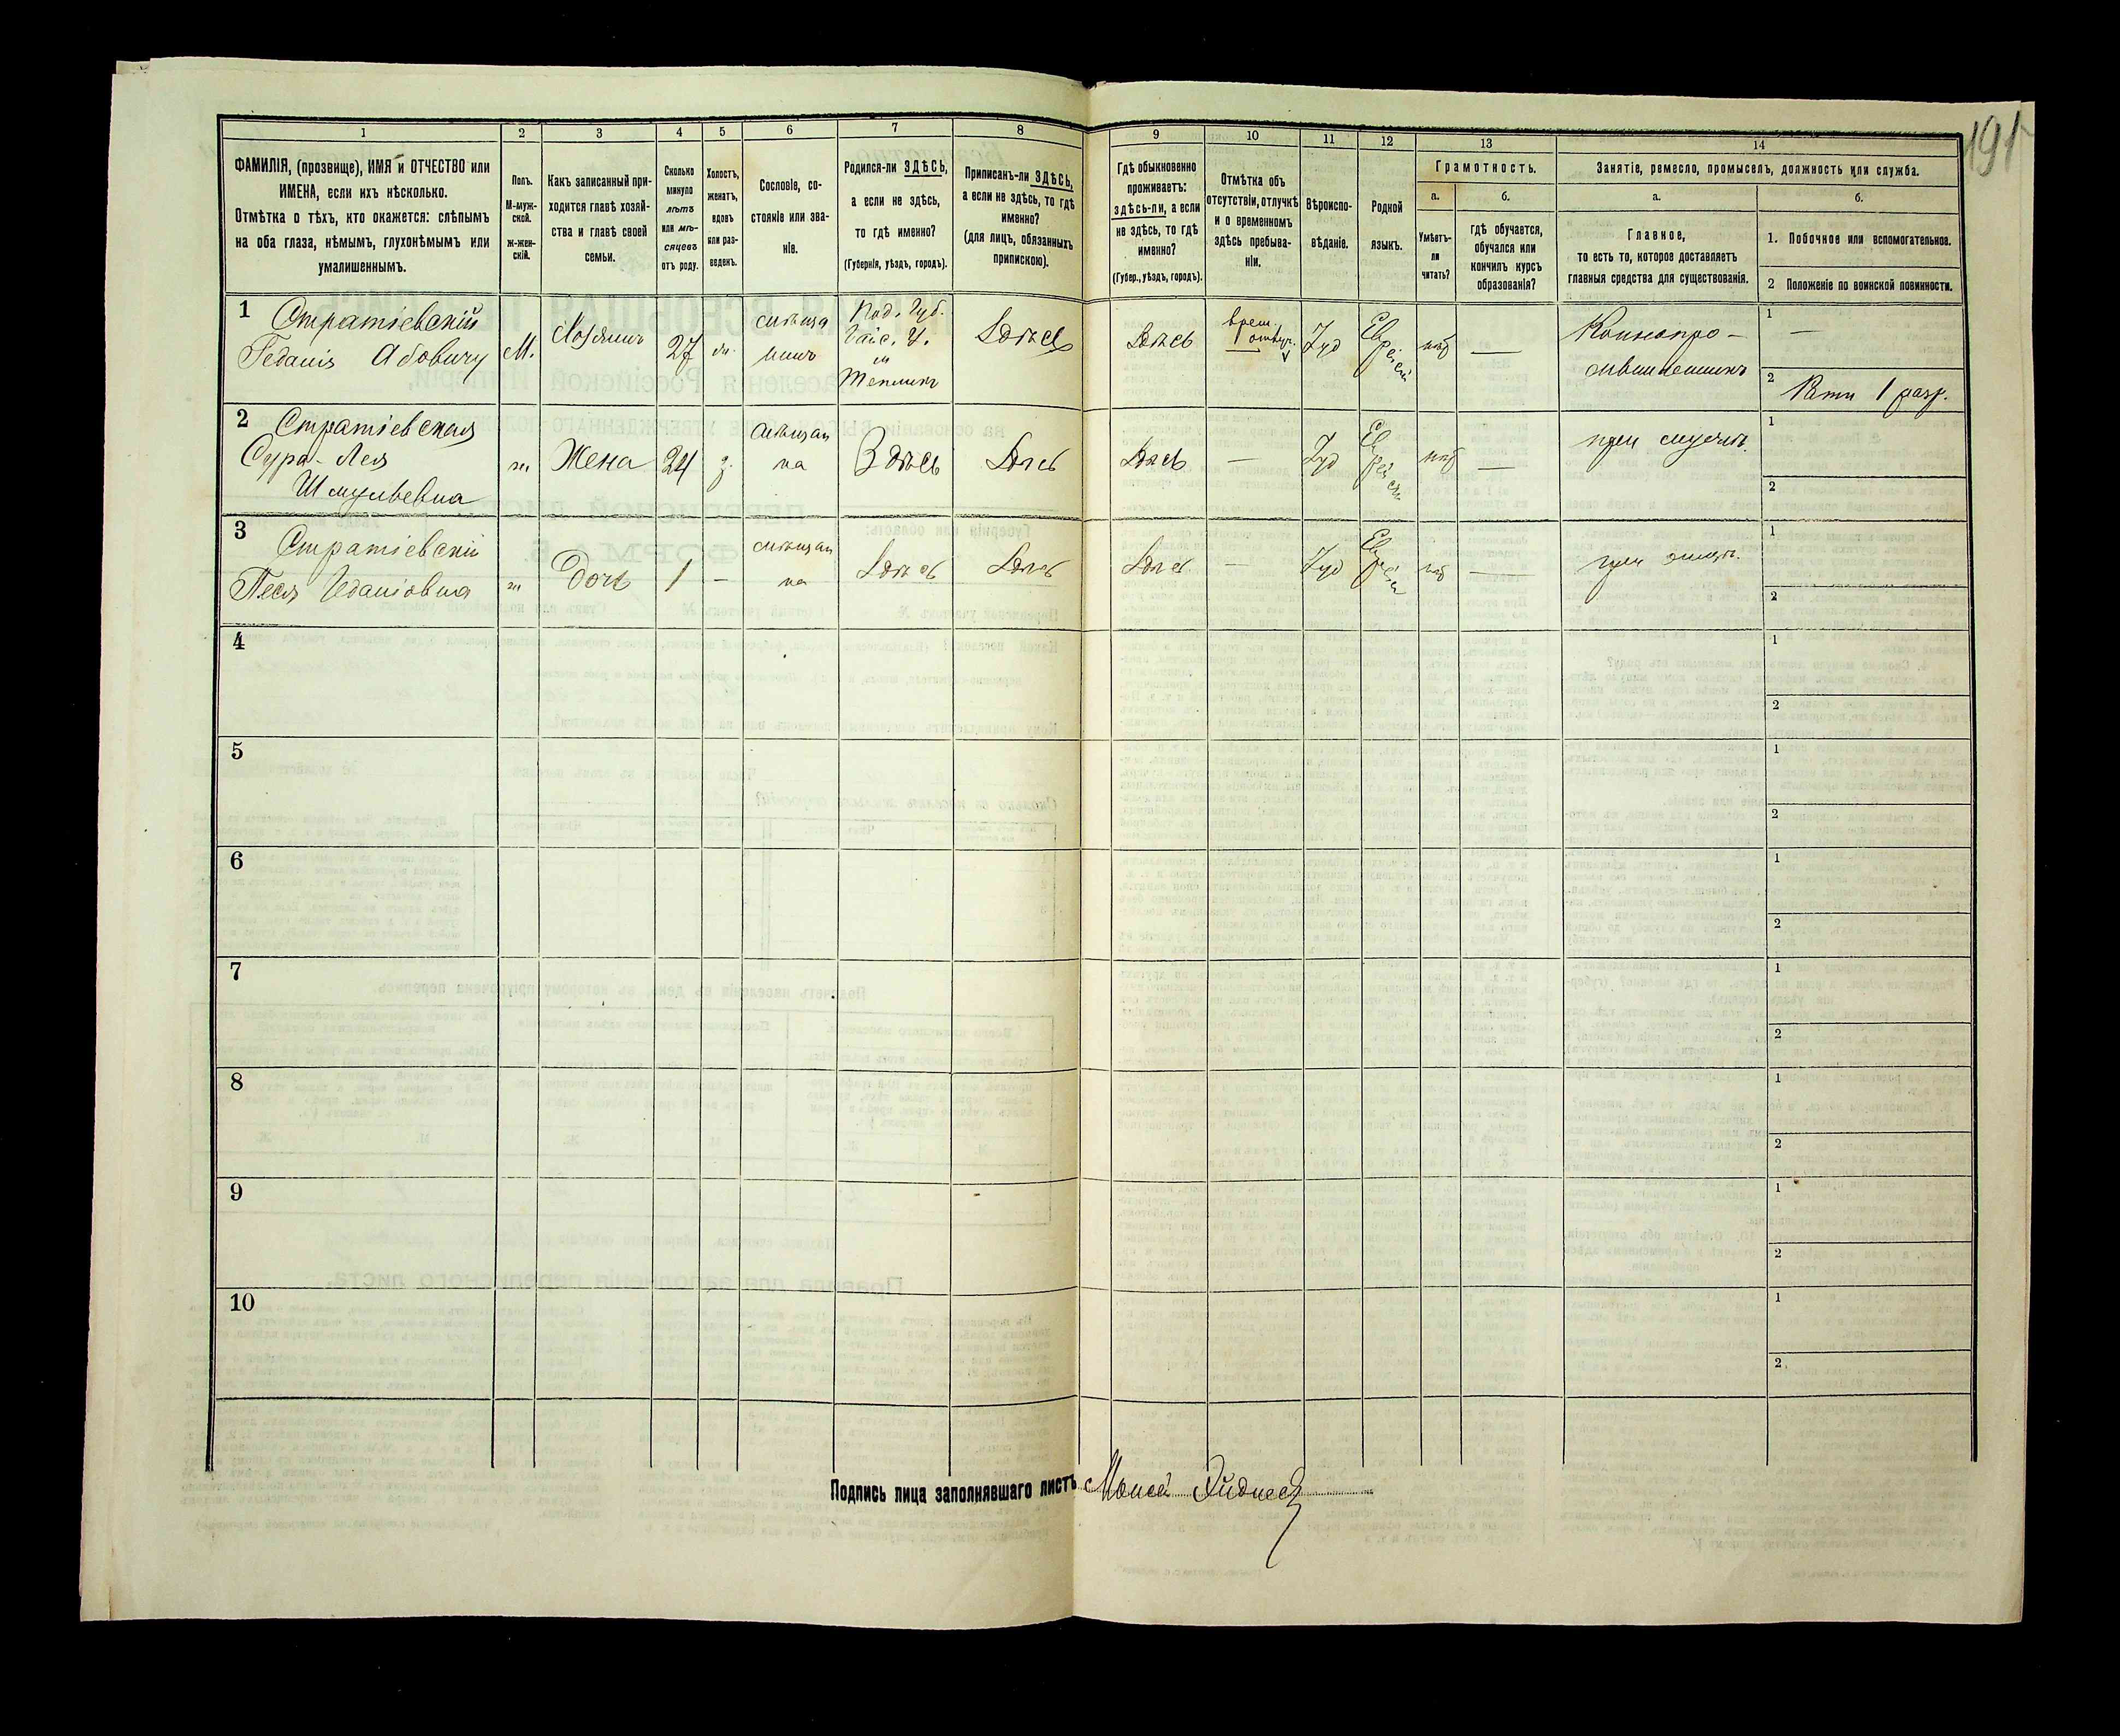 191
1
2
3
4
5
6
7
8
9
10
11
12
13
14
ФАМИЛІЯ, (прозвище), ИМЯ и ОТЧЕСТВО или
ИМЕНА, если ихъ нѣсколько.
Отмѣтка о тѣхъ, кто окажется: слѣпымъ
на оба глаза, нѣмымъ, глухонѣмымъ или
умалишеннымъ.
Полъ.
М-муж-
ской.
ж-жен-
скій.
Какъ записанный при-
ходится главѣ хозяй-
ства и главѣ своей
семьи.
Сколько
минуло
лѣтъ
или мѣ-
сяцевъ
отъ роду.
Холостъ,
женатъ,
вдовъ
или раз-
веденъ.
Сословіе, со-
стояніе или зва-
ніе.
Родился-ли ЗДѢСЬ,
а если не здѣсь,
то гдѣ именно?
(Губернія, уѣздъ, городъ).
Приписанъ-ли ЗДѢСЬ,
а если не здѣсь, то гдѣ
именно?
(для лицъ, обязанныхъ
припискою).
Гдѣ обыкновенно
проживаетъ:
здѣсь-ли, а если
не здѣсь, то гдѣ
именно?
(Губер., уѣздъ, городъ).
Отмѣтка объ
отсутствіи, отлучкѣ
и о временномъ
здѣсь пребыва-
ніи.
Вѣроиспо-
вѣданіе.
Родной
языкъ.
Грамотность.
а.
Умѣетъ-
ли
читать?
б.
гдѣ обучается,
обучался или
кончилъ курсъ
образованія?
Занятіе, ремесло, промыселъ, должность или служба.
а.
Главное,
то есть то, которое доставляетъ
главныя средства для существованія.
б.
1. Побочное или вспомогательное.
2 Положеніе по воинской повинности.
1 Стратіевскій
Гедалія Абовичъ
М.
Хозяинъ
27
мѣща
нинъ
Под. Губ.
Гайс. У.
м
Тепликъ
Здѣсь
Здѣсь
врем.
отлуч.
Іуд
Еврейскій
—
1 —
2 Рат. 1 разр.
2 Стратіевская
Сура-Лея
Шмулевна
ж
Жена
24
з.
мѣщан
ка
Здѣсь
Здѣсь
Здѣсь
—
Іуд
Еврейскій
—
при мужѣ.
1
2
3 Стратіевскій
Песя Гедаліовна
ж
Дочь
1
—
мѣщан
ка
Здѣсь
Здѣсь
Здѣсь
—
Іуд
—
при
1
2
4
1
2
5
1
2
6
1
2
7
1
2
8
1
2
9
1
2
10
1
2
Подпись лица заполнявшаго листъ Моисей